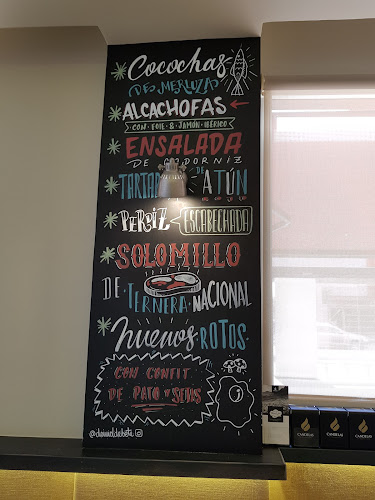 Cocochas
DE MERLUZA
ALCACHOFAS
CON FOIE & JAMÓN IBÉRICO
ENSALADA
DE CODORNIZ
TARTAR DE ATÚN
ROJO
PERDIZ ESCABECHADA
SOLOMILLO
DE TERNERA NACIONAL
Huevos ROTOS
CON CONFIT
DE PATO Y SETAS
CANDELAS CANDELAS CANDELAS